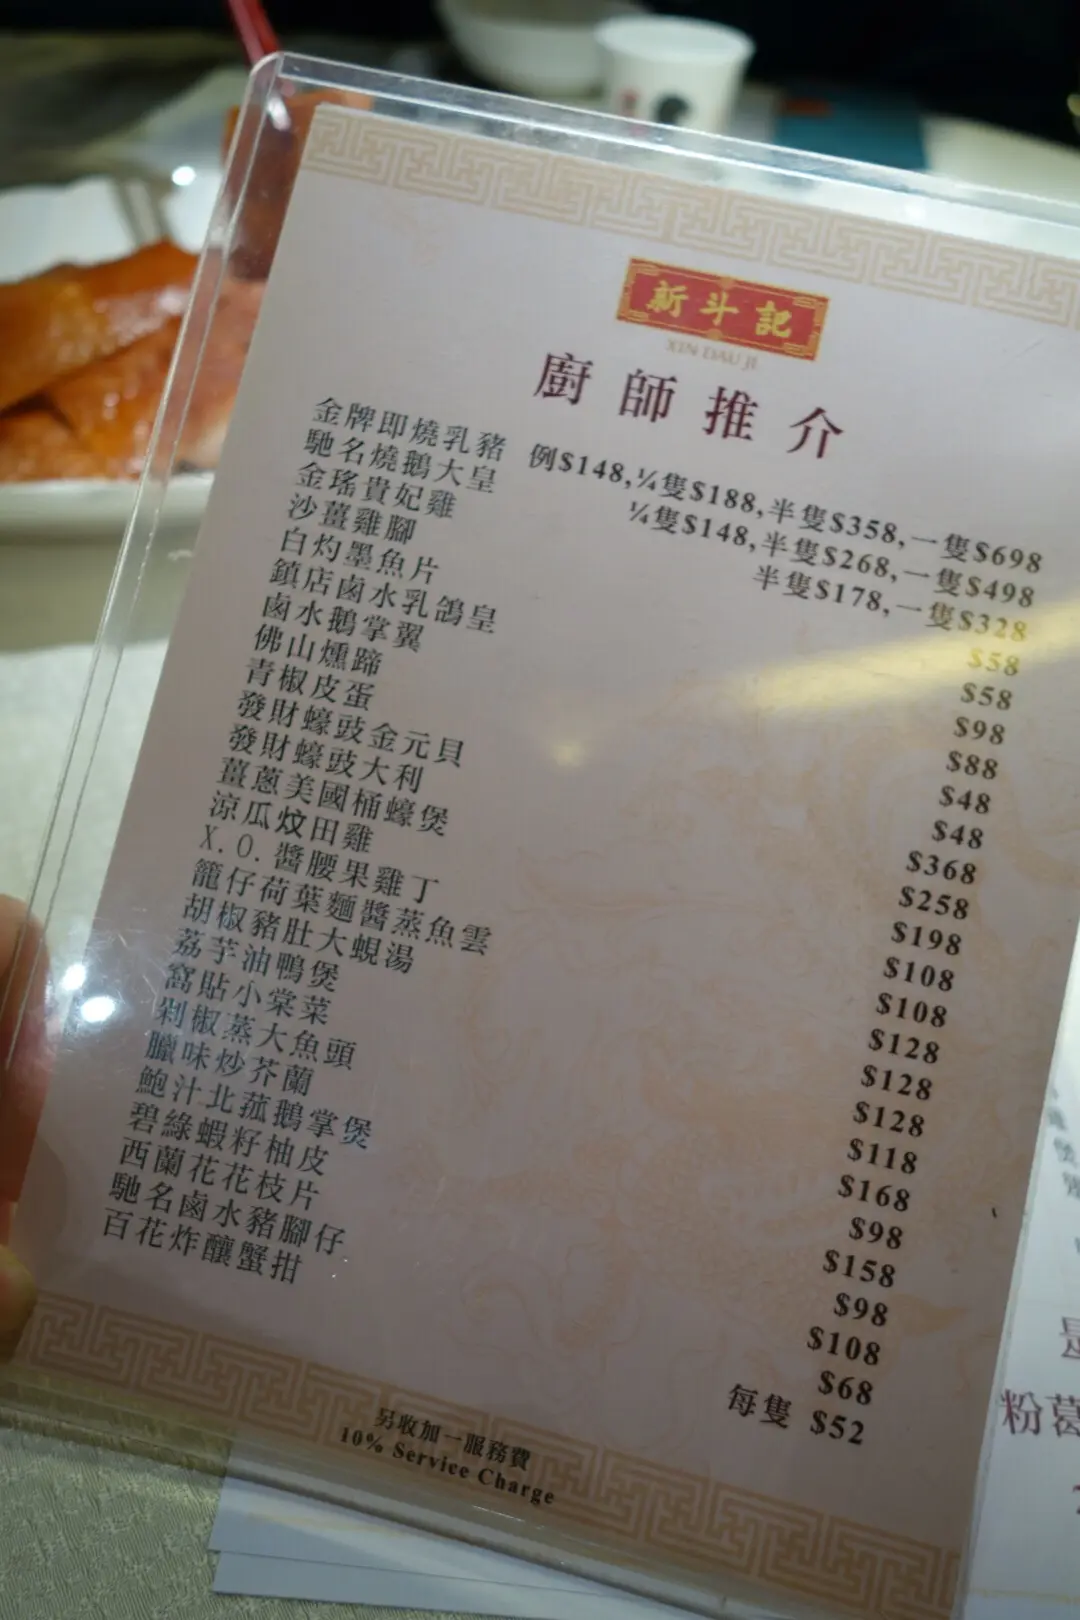 新斗記
XIN DAU JI
廚師推介
金牌即燒乳豬 例$148,¼隻$188,半隻$358,一隻$698
馳名燒鵝大皇 ¼隻$148,半隻$268,一隻$498
金瑤貴妃雞 半隻$178,一隻$328
沙薑雞腳 $58
白灼墨魚片 $58
鎮店鹵水乳鴿皇 $98
鹵水鵝掌翼 $88
佛山燻蹄 $48
青椒皮蛋 $48
發財蠔豉金元貝 $368
發財蠔豉大利 $258
薑蔥美國桶蠔煲 $198
涼瓜炆田雞 $108
X.O.醬腰果雞丁 $108
籠仔荷葉麵醬蒸魚雲 $128
胡椒豬肚大蜆湯 $128
荔芋油鴨煲 $128
窩貼小棠菜 $118
剁椒蒸大魚頭 $168
臘味炒芥蘭 $98
鮑汁北菰鵝掌煲 $158
碧綠蝦籽柚皮 $98
西蘭花花枝片 $108
馳名鹵水豬腳仔 $68
百花炸釀蟹拑 每隻 $52
另收加一服務費
10% Service Charge
粉葛